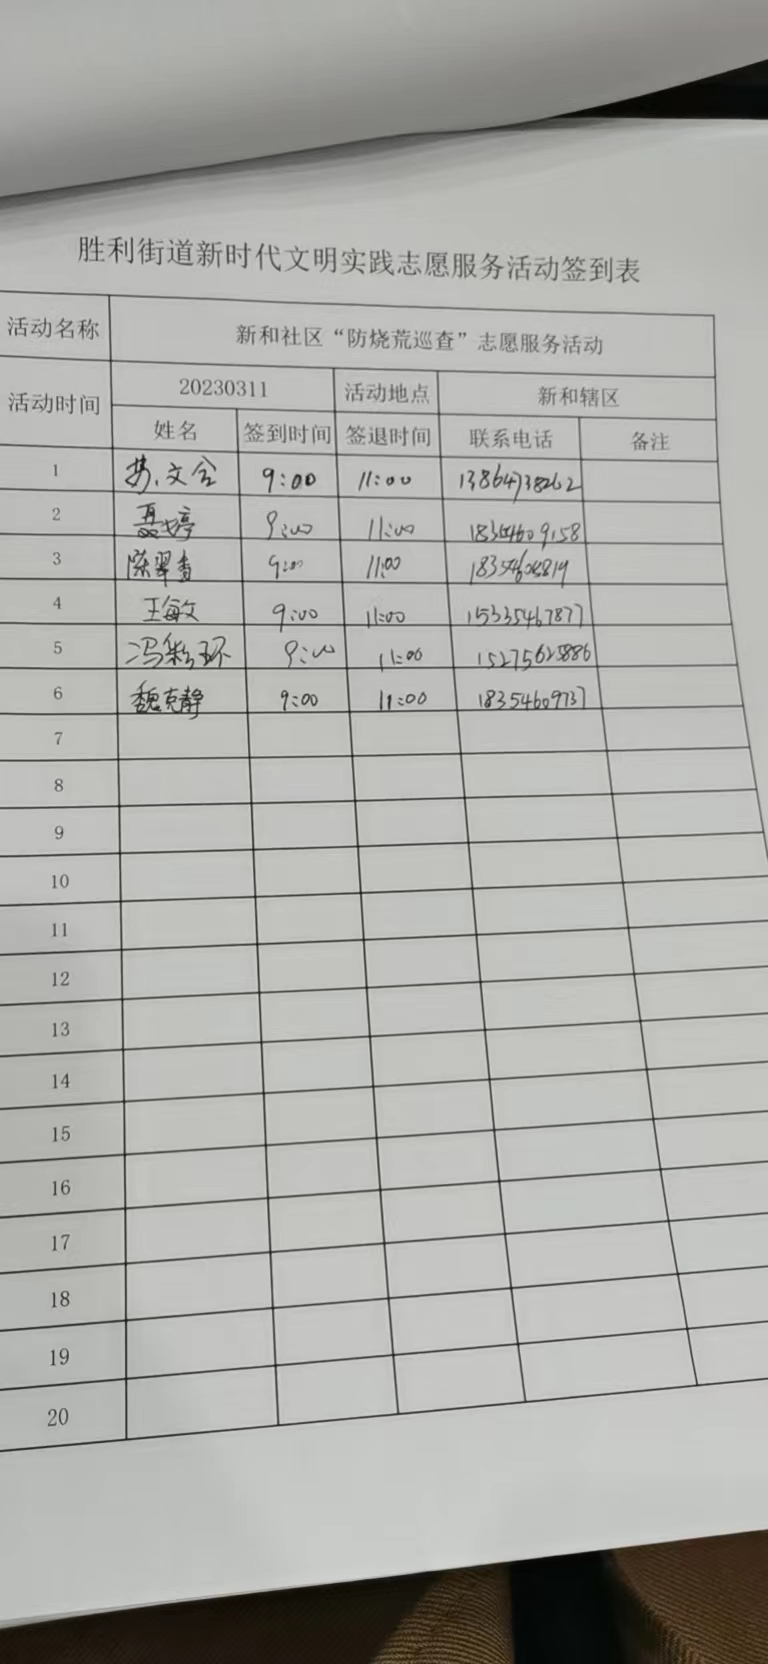 胜利街道新时代文明实践志愿服务活动签到表
活动名称 新和社区“防烧荒巡查”志愿服务活动
活动时间 20230311 活动地点 新和辖区
姓名 签到时间 签退时间 联系电话 备注
1 9:00 11:00
2 聂婷 9:00 11:00
3 陈翠香 9:00 11:00
4 王敏文 9:00 11:00 15335467877
5 冯彩环 9:00 11:00 15275625886
6 魏克静 9:00 11:00 18354609737
7
8
9
10
11
12
13
14
15
16
17
18
19
20